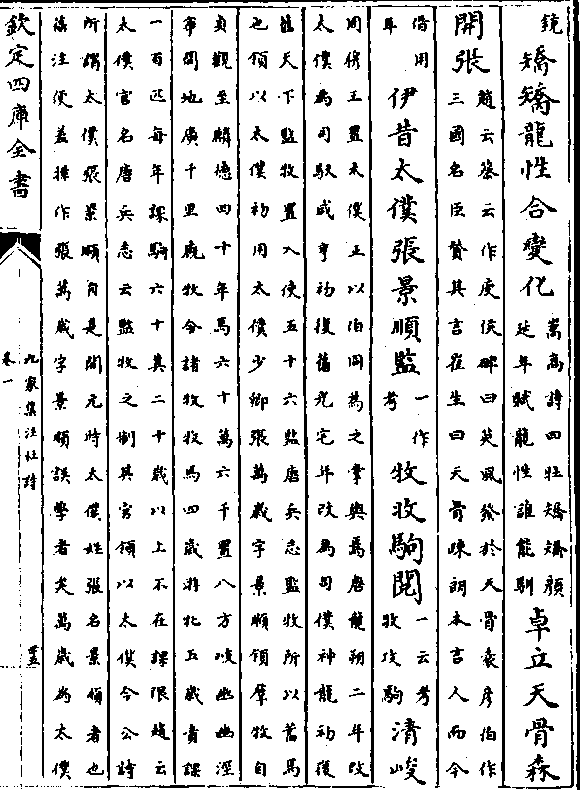 鏡矯矯龍性合變化嵩高詩四牡矯矯顏
延年賦龍性誰能馴卓立天骨森
開張趙云蔡云作庾侯碑曰英風發於天骨袁彦伯作
三國名臣贊其言崔生曰天骨疎朗本言人而今
借用
耳伊昔太僕張景順監一作
考牧攻駒閱一云考
牧攻駒清峻
周穆王置太僕正以伯冏為之掌輿馬唐龍朔二年改
太僕為司馭咸亨初復舊光宅年改為司僕神龍初復
舊天下監牧置八使五十六監唐兵志監牧所以蕃馬
也領以太僕初用太僕少卿張萬歲字景順領羣牧自
貞觀至麟德四十年馬六十萬六千置八方岐豳涇
寧間地廣千里牧分諸牧牧馬四歲游牝五歲責課
一百匹每年課駒六十其二十歲以上不在課限趙云
太僕官名唐兵志云監牧之制其官領以太僕今公詩
所謂太僕張景順自是開元時太僕姓張名景順者也
舊注便盖操作張萬歲字景順誤學者矣萬歲為太僕
欽定四庫全書
九家集注杜詩
卷一